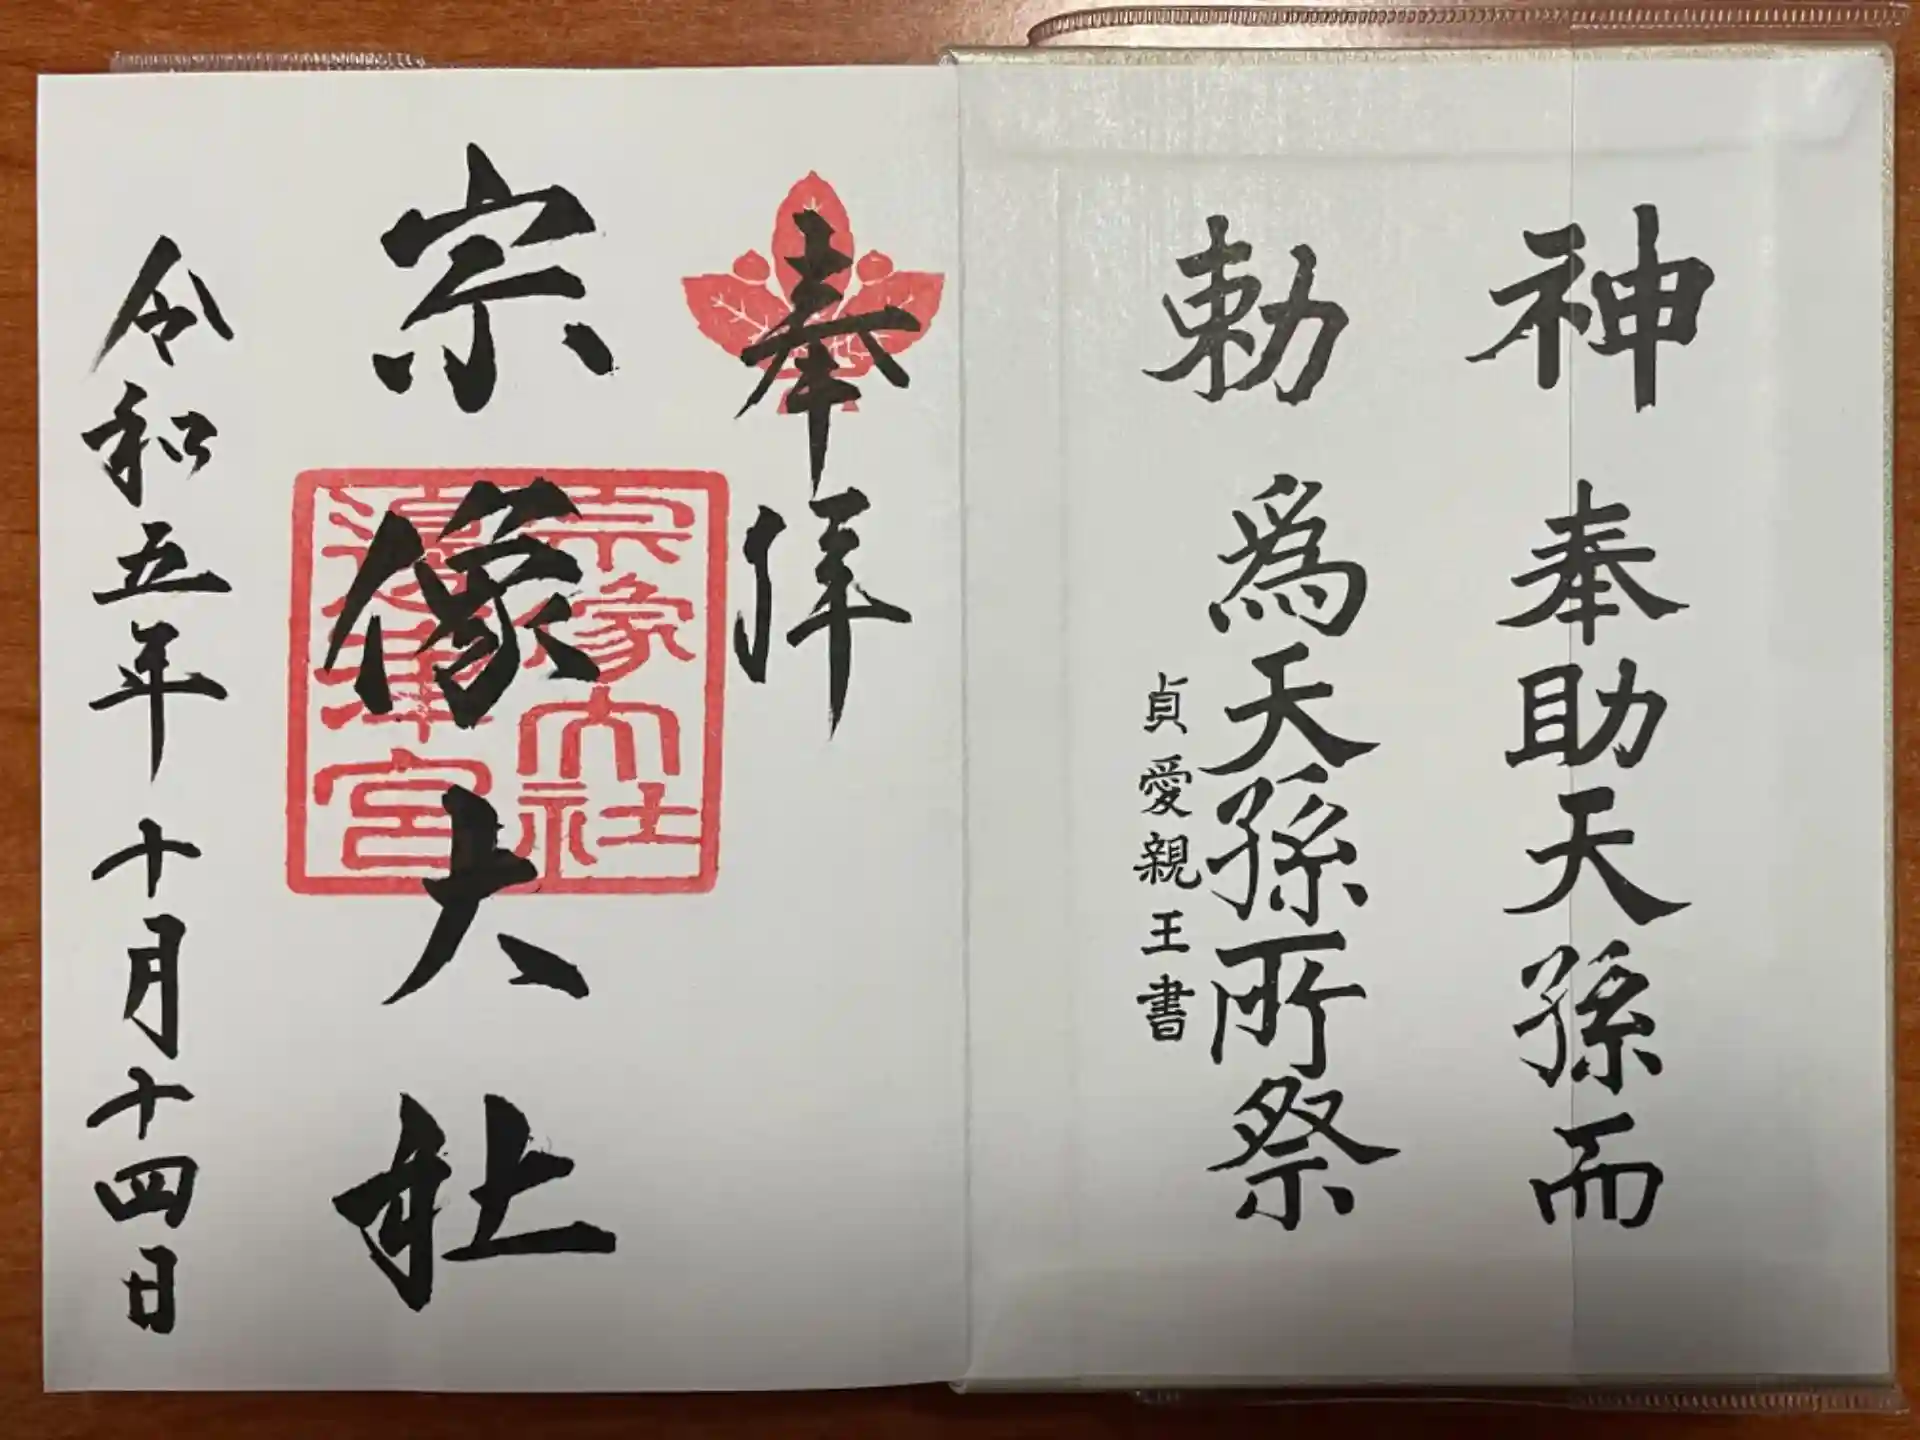 神勅
奉助天孫而
爲天孫所祭
貞愛親王書
奉拝
宗像大社
宗像大社
邊津宮
令和五年十月十四日